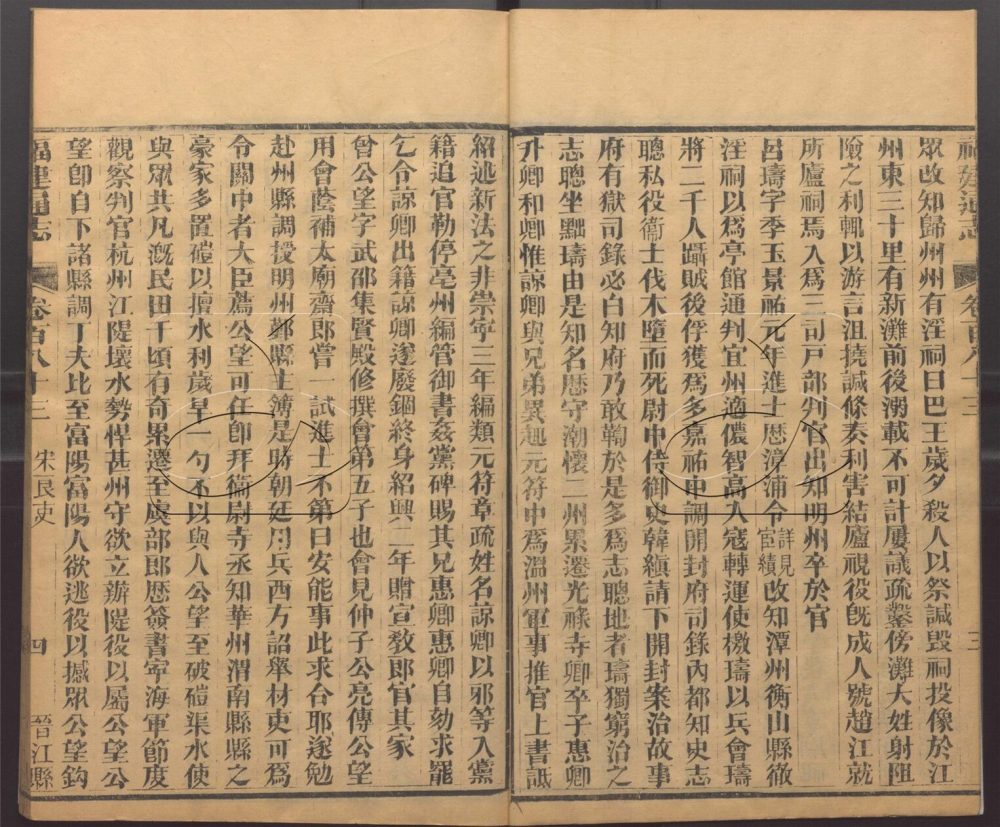 眾改知歸州州有淫祠曰巴王歲夕殺人以祭諴毀祠投像於江
州東三十里有新灘前後溺載不可計屢議疏鑿傍灘大姓射阻
險之利輒以游言沮撓諴條奏利害結廬視役旣成人號趙江就
所廬祠焉入爲三司戸部判官出知明州卒於官
呂璹字季玉景祐元年進士歴漳浦令詳見宦績改知潭州衡山縣徹
淫祠以爲亭館通判宜州適儂智高入寇轉運使檄璹以兵會璹
將二千人躡賊後俘獲爲多嘉祐中調開封府司錄內都知史志
聰私役衞士伐木墮而死尉申侍御史韓縝請下開封案治故事
府有獄司錄必白知府乃敢鞫於是多爲志聰地者璹獨窮治之
志聰坐黜璹由是知名歴守潮懷二州累遷光祿寺卿卒子惠卿
升卿和卿惟諒卿與兄弟異趣元符中爲溫州軍事推官上書詆
紹述新法之非崇寧三年編類元符章疏姓名諒卿以邪等入黨
籍追官勒停亳州編管御書姦黨碑賜其兄惠卿惠卿自劾求罷
乞令諒卿出籍諒卿遂廢錮終身紹興二年贈宣教郎官其家
曾公望字武邵集賢殿修撰會第五子也會見仲子公亮傳公望
用會蔭補太廟齋郎嘗一試進士不第曰安能事此求合耶遂勉
赴州縣調授明州鄞縣主簿是時朝廷用兵西方詔舉材吏可爲
令關中者大臣薦公望可任卽拜衞尉寺丞知華州渭南縣縣之
豪家多置磑以擅水利歲旱一勺不以與人公望至破磑渠水使
與眾共凡漑民田千頃有奇累遷至虞部郎歴簽書寧海軍節度
觀察判官杭州江隄壞水勢悍甚州守欲立辦隄役以屬公望公
望卽自下諸縣調丁夫比至富陽富陽人欲逃役以撼眾公望鈎
福建通志 卷百八十三 宋良吏 四 晉江縣